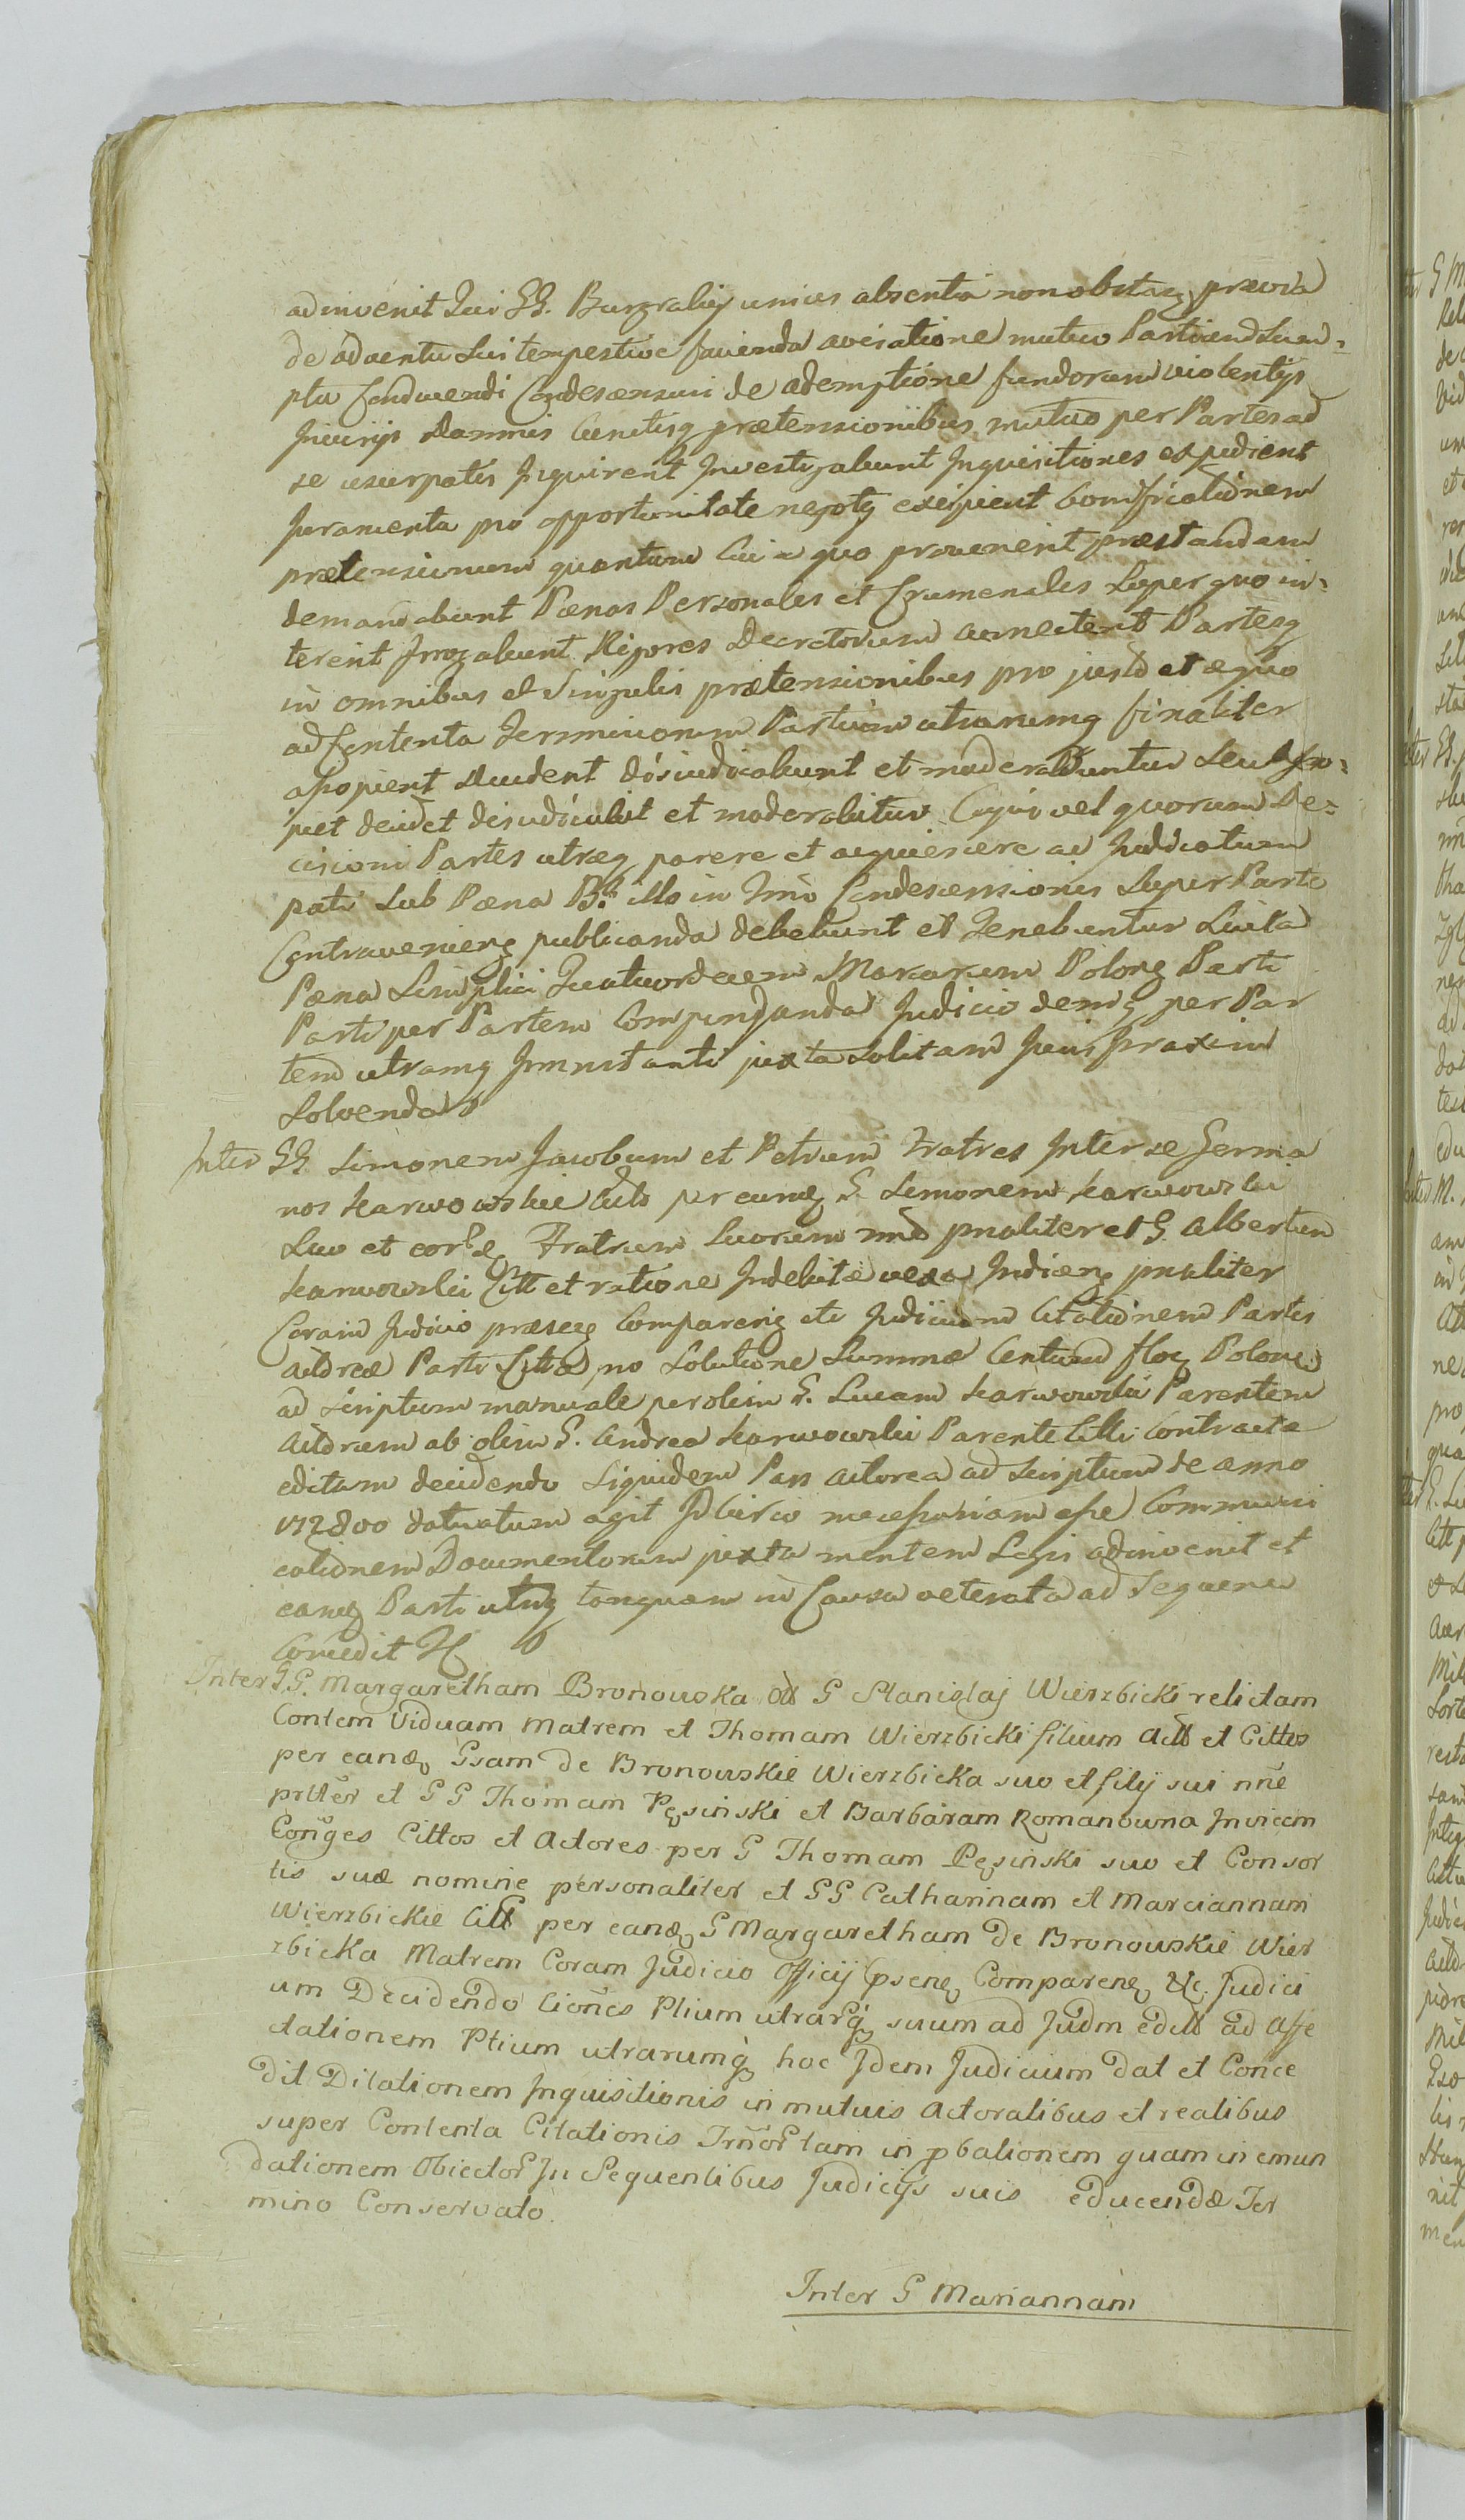 adinvenit Qui GG. Burgrabij unius absentia non obstan prævia
de adventu sui tempestive facienda avisatione mutuo Partium Sum=
ptu Conducendi Condescensuri de ademptione fundorum violentijs
Injurijs Damnis Cunctisq prætensionibus mutuo per Partes ad
se usurpatis Inquirent Investigabunt Inquisitiones expedient
Juramenta pro opportunitate negotij excipient bonificationem
prætensionum quantum Cui a quo provenerit præstandam
demandabunt Pænas Personales et Crumenales super quo in=
tererit Irrogabunt Rigores Decretorum connectent Partesq
in omnibus et Singulis prætensionibus pro justo et æquo
ad Contenta Terminorum Partium utrarumq finaliter
asopient decident disiudicabunt et moderabuntur seu Aso=
piet decidet disiudicabit et moderabitur Cujus vel quorum De=
cisioni Partes utræq parere et acquiescere ac Judicatum
pati sub Pæna illo in Trno Condescensionis super Parte
Contravenien publicanda debebunt et Tenebuntur Luita
Pæna simplici Quatuordecem Marcarum Polon Parti
Parti per Partem Compendanda Judicio demq per Par
tem utramq Imnistanti juxta solitam Juris praxim
Solvenda
Inter GG. Simonem Jacobum et Petrum Fratres Inter se Germa
nos Karwowskie Acto per eund G. Simonem Karwowski
Suo et Fratrum Suorum nnõ pnaliter et G. Albertum
Karwowski Citt et ratione Indebitæ vexæ Indicen pnaliter
Coram Judicio præsen Comparen etc Judicium Citationem Partis
Actoreæ Parti Cittæ pro Solutione Summæ Centum flor Polon
ad scriptum manuale per olim G. Lucam Karwowski Parentem
Actorum ab olim G. Andrea Karwowski Parente Citti Contracta
editam decidendo Siquidem Pars Actorea ad Scriptum de anno
172800 datuatum agit necessariam esse Communi
cationem Documentorum juxta mentem Legis adinvenit et
eamq Parti utriq tanquam in Causa veterata ad Sequen
Concedit
Inter G.G. Margaretham Bronowska G Stanislaj Wierzbicki relictam
Contem Viduam Matrem et Thomam Wierzbicki filium Act et Cittos
per eand Gsam de Bronowskie Wierzbicka suo et filij sui nñe
prltẽr et G G Thomam Pęsinski et Barbaram Romanowna Invicem
Conges Cittos et Actores per G Thomam Pęsinski suo et Consor
tis suæ nomine personaliter et GG Catharinam et Mariannam
Wierzbickie Citt per eand G Margaretham de Bronowskie Wier
zbicka Matrem Coram Judicio Officij psen Comparen &c. Judici
um Decidendo Cioñes Ptium utrarq suum ad Judm edctt ad Affe
ctationem Ptium utrarumq hoc Idem Judicium dat et Conce
dit Dilationem Inquisitionis in mutuis Actoratibus et reatibus
super Contenta Citationis Trñor tam in pbationem quam in emun
dationem Obiector In Sequentibus Judicijs suis educendæ Ter
mino Conservato.
Inter G Mariannam